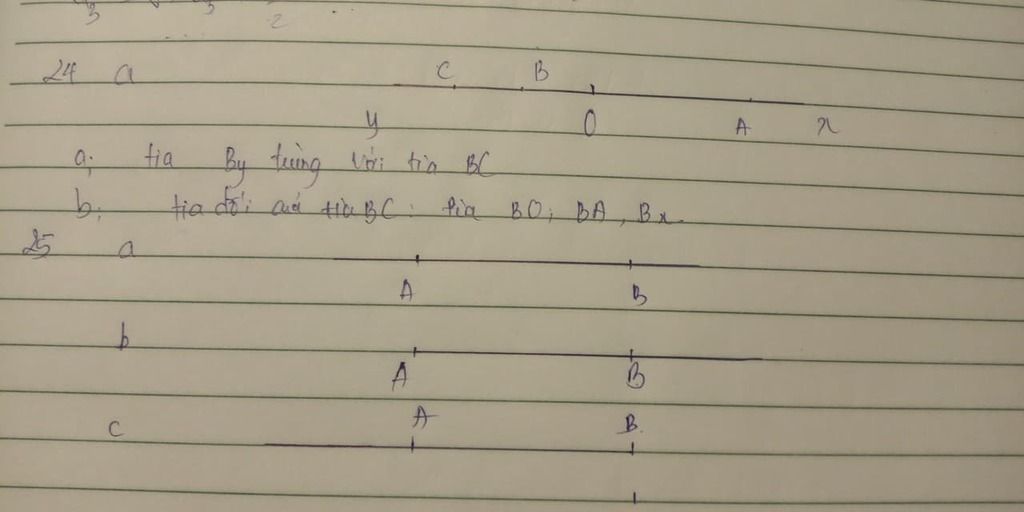 3 3 2
24 a C B
y O A x
a; tia By trùng với tia BC
b; tia đối của tia BC: tia BO; BA, Bx.
25 a
A B
b
A B
c A B